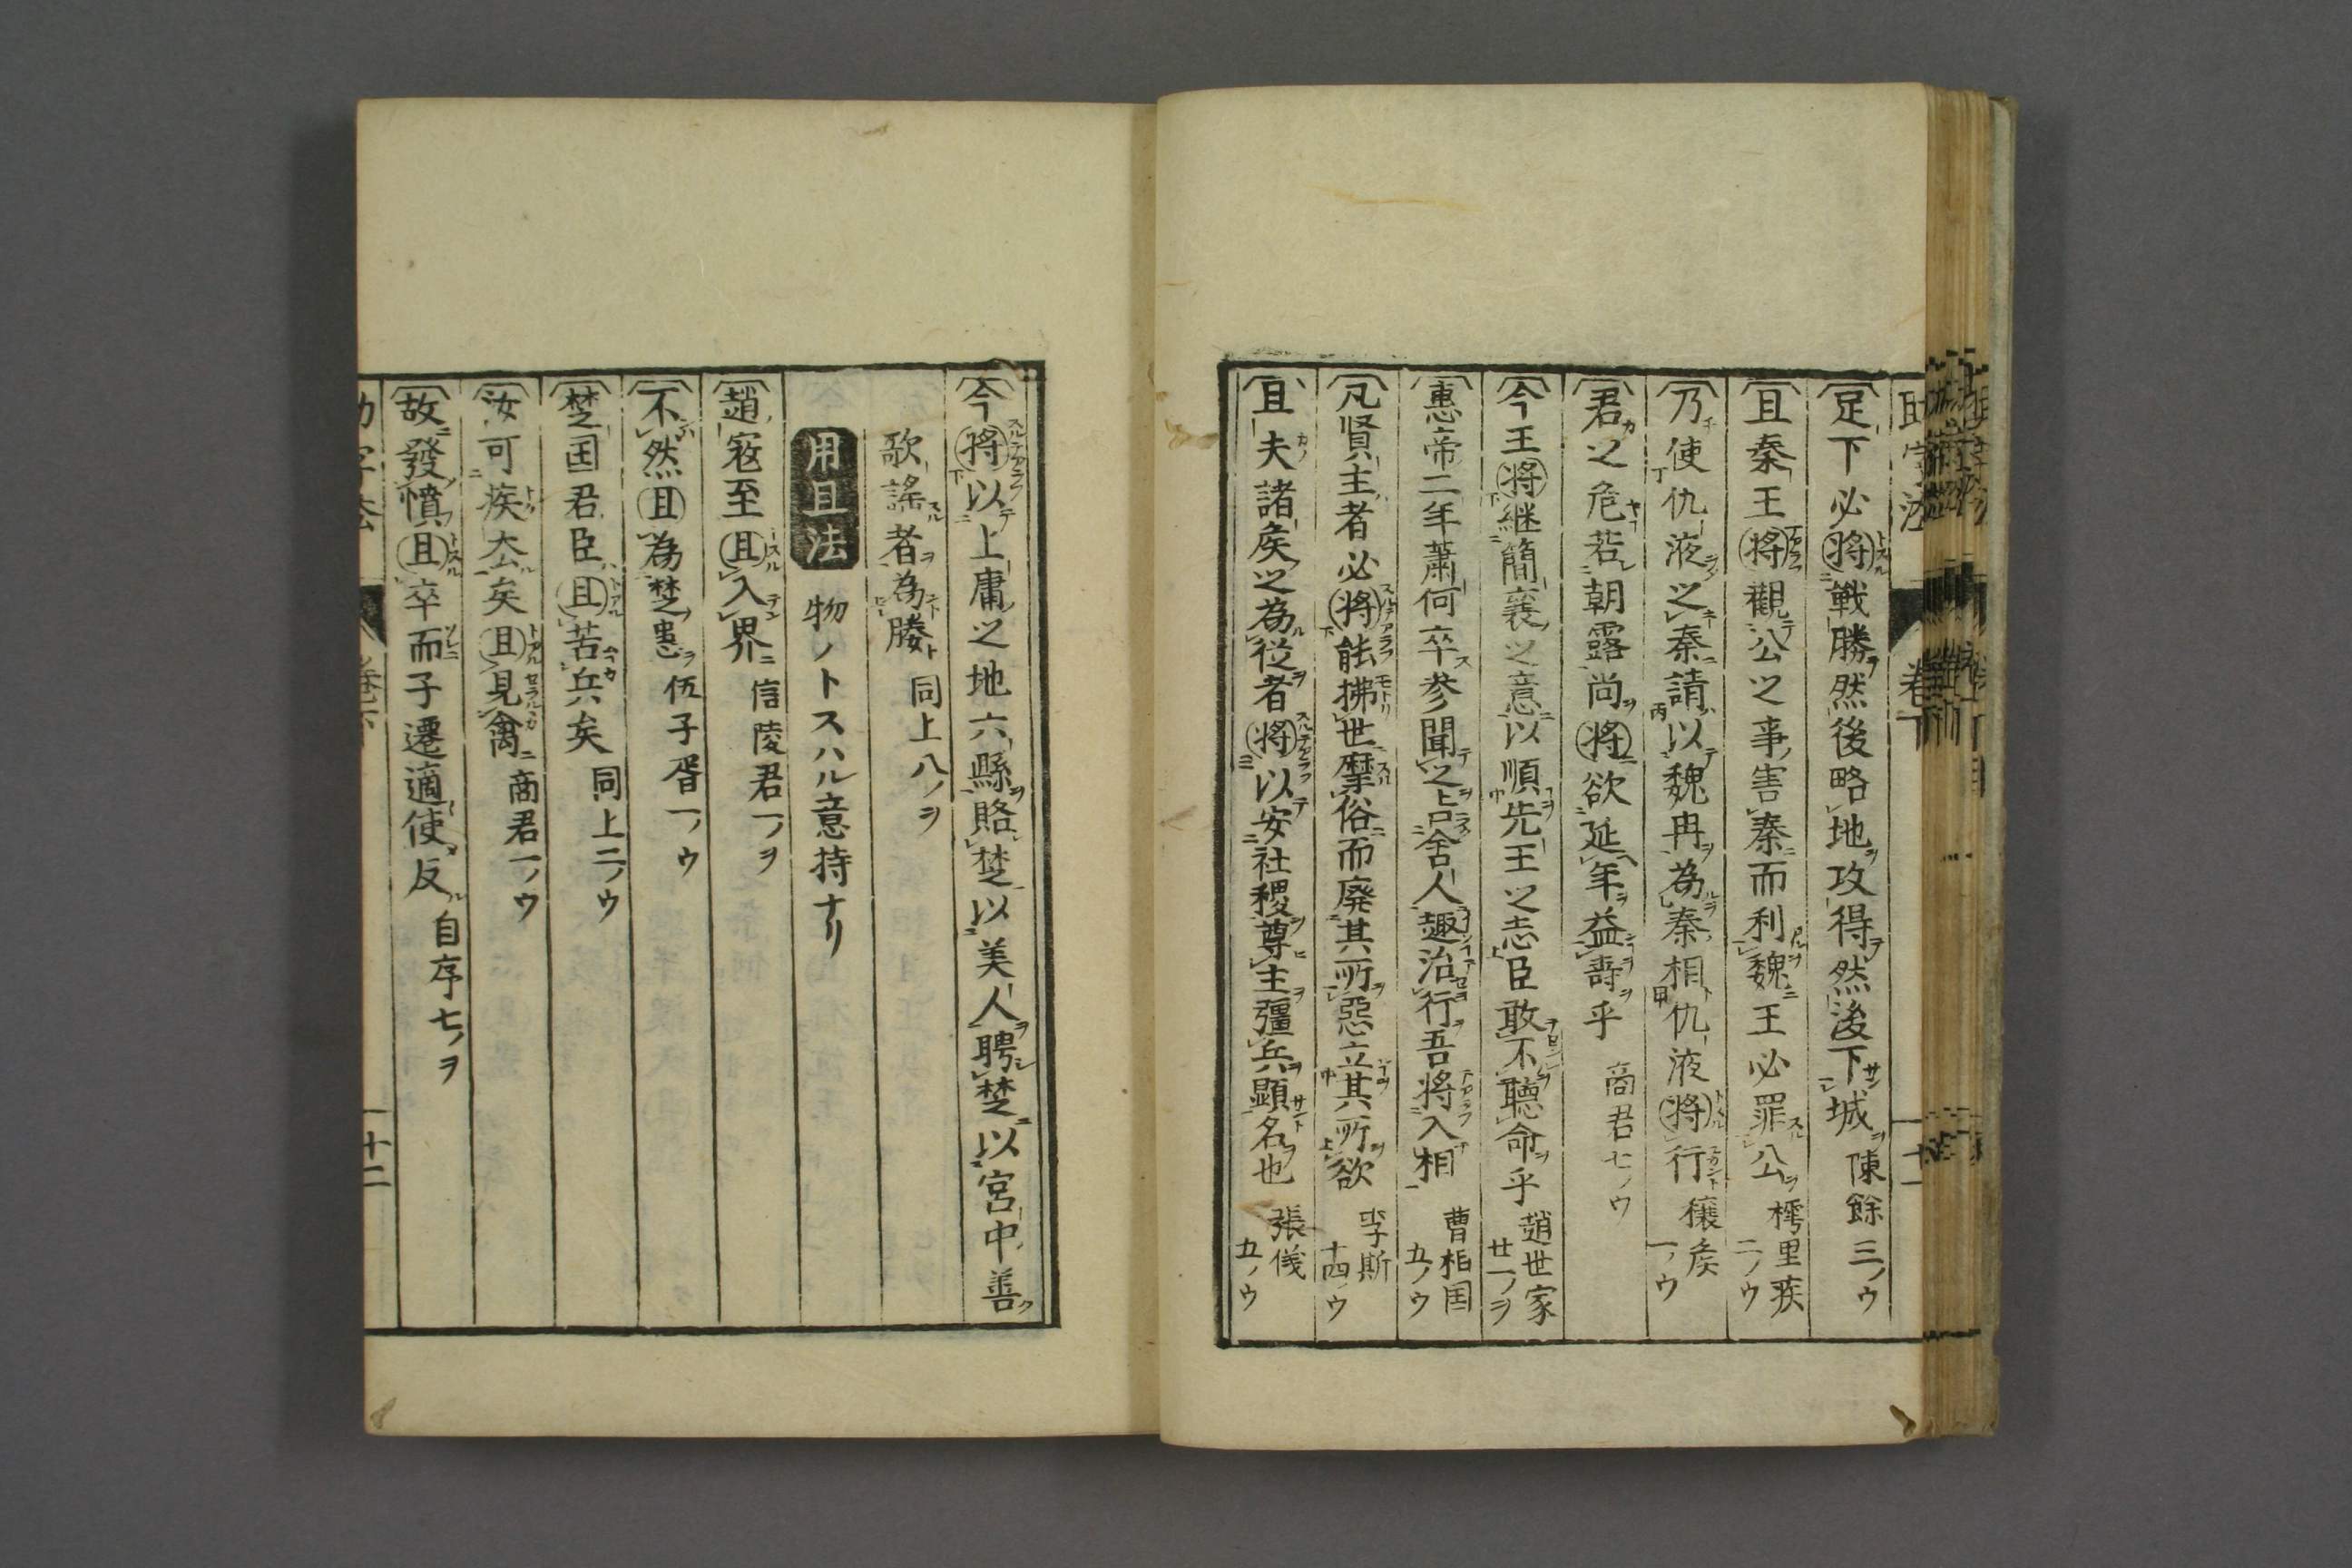 助字法 卷下 十一
足下必將戰勝然後略地攻得然後下城 陳餘 三ノウ
且秦王將觀公之事害秦而利魏王必罪公 樗里疾 二ノウ
乃使仇液之秦請以魏冉為秦相仇液將行 穰矦 一ノウ
君之危若朝露尚將欲延年益壽乎 商君七ノウ
今王將継簡襄之意以順先王之志臣敢不聽命乎 趙世家 廿一ノヲ
惠帝二年蕭何卒参聞之告舍人趣治行吾將入相 曹相国 五ノウ
凡賢主者必將能拂世摩俗而廃其所惡立其所欲 李斯 十四ノウ
且夫諸矦之為從者將以安社稷尊主彊兵顯名也 張儀 五ノウ
今將以上庸之地六縣賂楚以美人聘楚以宮中善
歌謠者為媵 同上八ノヲ
用且法 物ノトスハル意持ナリ
趙寇至且入界 信陵君一ノヲ
不然且為楚患 伍子胥一ノウ
楚国君臣且苦兵矣 同上二ノウ
汝可疾去矣且見禽 商君一ノウ
故發憤且卒而子遷適使反 自序七ノヲ
助字法 卷下 十二